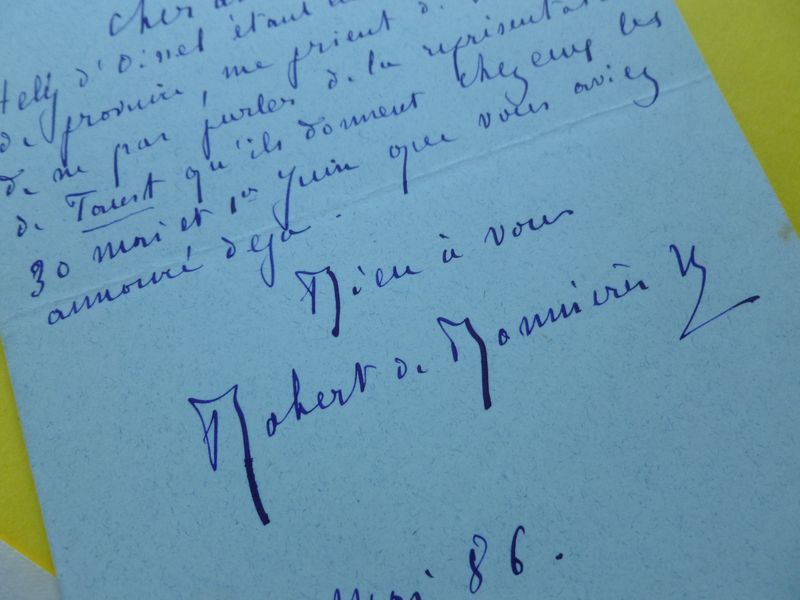 cher
Hély d'Oissel étant
de province, me prient de
de ne pas parler de la représentat
de Faust qu'ils donnent chez eux les
30 mai et 1er Juin que vous aviez
annoncé déjà.
Bien à vous
Robert de Bonnières
Mai 86.